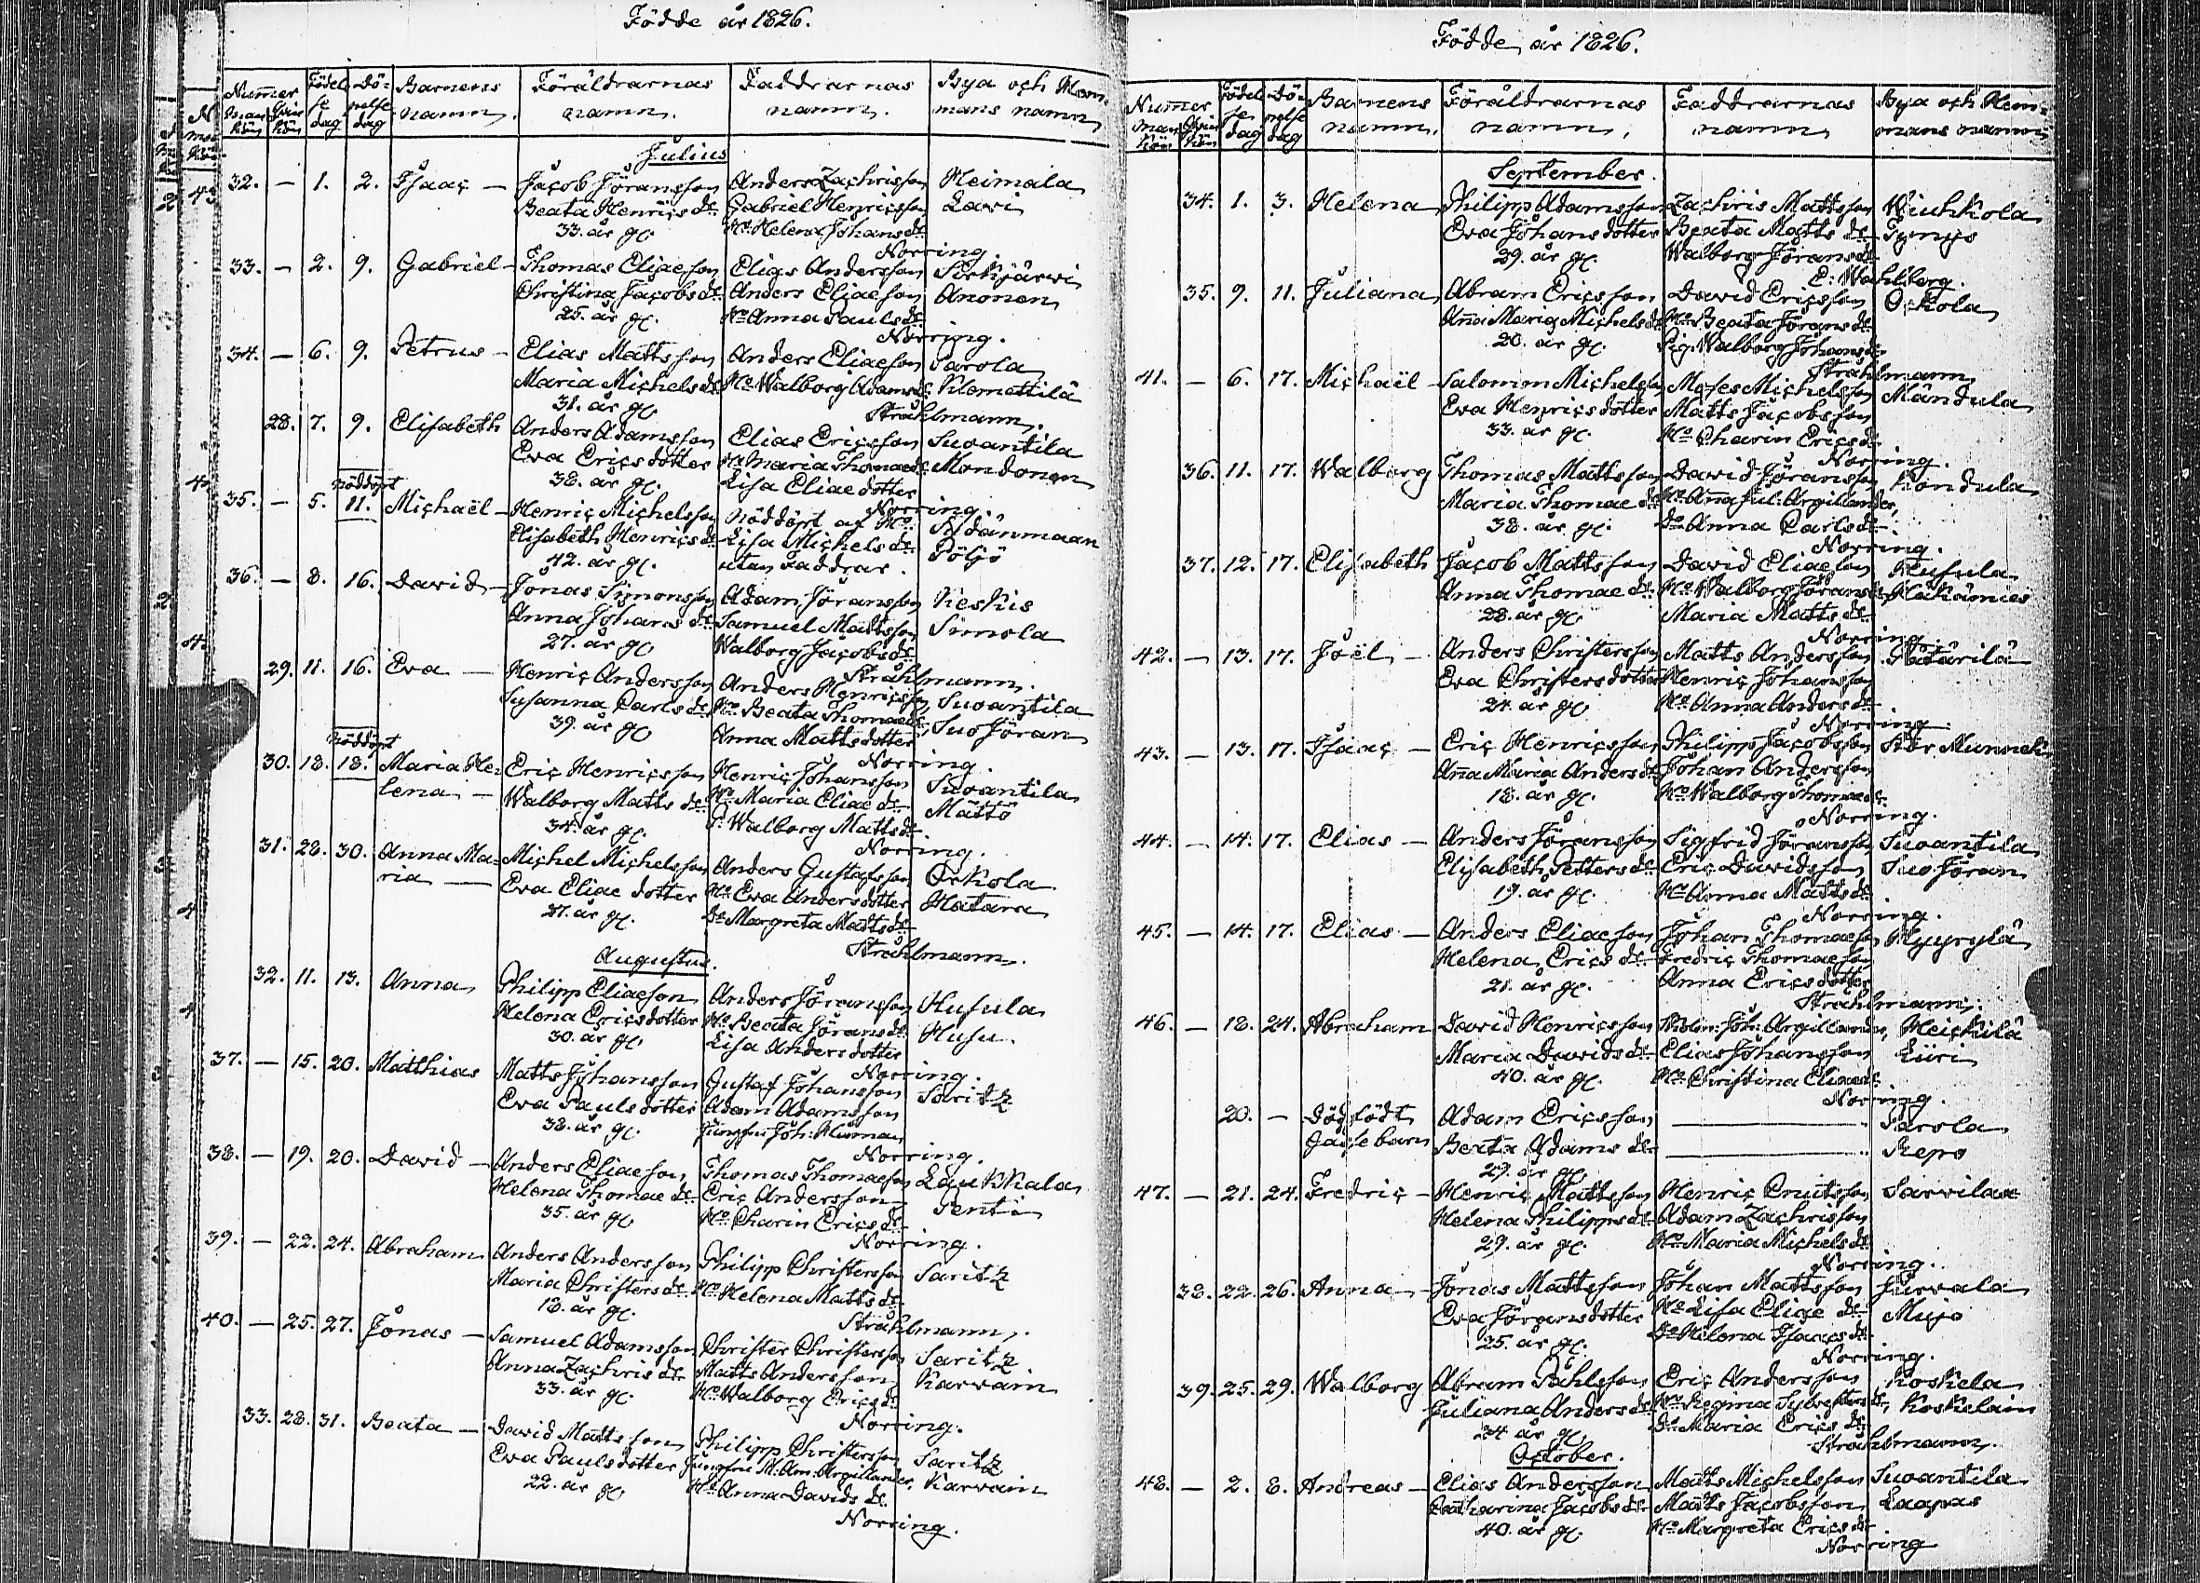 Födde år 1826.
Numer Födel- Dö- Barnens Föräldrarnas Faddrarnas Bya och Hem-
Man Qvin se pelse namn. namn. namn. mans namn
kön kön dag dag
Julius
32. — 1. 2. Isaac — Jacob Jöransson Anders Zachrisson Heimala
Beata Henrics dr Gabriel Henricsson Lavi
33. år gl. Ho Helena Johans dr
Norring.
33. — 2. 9. Gabriel — Thomas Eliaeson Elias Andersson Sirkjärvi
Christina Jacobs dr Anders Eliaeson Anonen
25. år gl. Ho Anna Pauls dr
Norring.
34. — 6. 9. Petrus — Elias Mattsson Anders Eliaeson Parola
Maria Michels dr Ho Walborg Adams dr Klomattila
31. år gl.
Strahlmann.
28. 7. 9. Elisabeth Anders Adamsson Elias Ericsson Suoantila
Eva Erics dotter Ho Maria Thomae dr Mondonen
38. år gl. Lisa Eliae dotter
Norring.
Nöddöpt
35. — 5. 11. Michaël — Henric Michelsson Nöddöpt af Ho
Elisabeth Henrics dr Lisa Michels dr Pöljö
42. år gl. utan Faddrar.
36. — 8. 16. David — Jonas Simonsson Adam Jöransson Keskis
Anna Johans dr Samuel Mattsson Simola
27. år gl. Walborg Jacobs dr
Strahlmann.
29. 11. 16. Eva — Henric Andersson Anders Henricsson Suoantila
Susanna Carls dr Ho Beata Thomae dr Suo Jöran
39. år gl. Anna Matts dotter
Norring.
Nöddöpt
30. 18. 18. Maria He- Eric Henricsson Henric Johansson Suoantila
lena — Walborg Matts dr Ho Maria Eliae dr Mättö
34. år gl. P. Walborg Matts dr
Norring.
31. 28. 30. Anna Ma- Michel Michelsson Anders Gustafsson Orkola
ria — Eva Eliae dotter Ho Eva Anders dotter Hatara
27. år gl. Do Margreta Matts dr
Strahlmann.
Augustus.
32. 11. 13. Anna Philipp Eliaeson Anders Jöransson Husula
Helena Erics dotter Ho Beata Jörans dr Husu.
30. år gl. Lisa Anders dotter
Norring.
37. — 15. 20. Matthias Matts Johansson Gustaf Johansson Saritz
Eva Pauls dotter Adam Adamsson
38. år gl. Jungfru Joh: Human
Norring.
38. — 19. 20. David — Anders Eliaeson Thomas Thomaeson Laukkala
Helena Thomae dr Eric Andersson Penti
35. år gl. Ho Charin Erics dr
Norring.
39. — 22. 24. Abraham Anders Andersson Philipp Christersson Saritz
Maria Christers dr Ho Helena Matts dr
18. år gl.
Strahlmann.
40. — 25. 27. Jonas — Samuel Adamsson Christer Christersson Saritz
Anna Zachris dr Matts Andersson Karvain
33. år gl. Ho Walborg Erics dr
Norring.
33. 28. 31. Beata — David Mattsson Philipp Christersson Saritz
Eva Pauls dotter Jungfru M: Am: Argillander, Karvain
22. år gl. Ho Anna Davids dr
Norring.
Födde år 1826.
Numer Födel- Dö- Barnens Föräldrarnas Faddrarnas Bya och Hem-
Man Qvin se pelse namn. namn. namn mans namn
kön kön dag dag
September.
34. 1. 3. Helena Philipp Adamsson Zachris Mattsson Kiuhkola
Eva Johans dotter Beata Matts dr Tynys
29. år gl. Walborg Jörans dr
E: Wahlberg.
35. 9. 11. Juliana Abram Ericsson David Ericsson Orkola
Aña Maria Michels dr Ho Beata Jörans dr
20. år gl. Pig. Walborg Johans dr
Strahlmann.
41. — 6. 17. Michaël — Salomon Michelsson Moses Michelsson Mändula
Eva Henrics dotter Matts Jacobsson
33. år gl. Ho Charin Erics dr
Norring.
36. 11. 17. Walborg Thomas Mattsson David Jöransson Kondula
Maria Thomae dr Ho Aña Jul: Argillander,
38. år gl. Do Anna Carls dr
Norring.
37. 12. 17. Elisabeth Jacob Mattsson David Eliaeson Husula
Anna Thomae dr Ho Walborg Jörans dr
28. år gl. Maria Matts dr
Norring.
42. — 13. 17. Joël — Anders Christersson Matts Andersson
Eva Christers dotter Henric Johansson
24. år gl. Ho Anna Anders dr
Norring.
43. — 13. 17. Isaac — Eric Henricsson Philipp Jacobsson
Aña Maria Anders dr Johan Andersson
18. år gl. Ho Walborg Thomae dr
Norring.
44. — 14. 17. Elias — Anders Jöransson Sigfrid Jöransson Suoantila
Elisabeth Petters dr Eric Davidsson Suo Jöran
19. år gl. Ho Anna Matts dr
Norring.
45. — 14. 17. Elias — Anders Eliaeson Johan Thomaeson Hyyrylä
Helena Erics dr Fredric Thomaeson
21. år gl. Anna Erics dotter
Strahlmann.
46. — 18. 24. Abraham David Henricsson Joh: Argillander, Heickilä
Maria Davids dr Elias Johansson Liiri
40. år gl. Ho Christina Eliae dr
Norring.
20. — Dödfödt Adam Ericsson — Parola
Gossebarn Beata Adams dr — Repo
29. år gl.
47. — 21. 24. Fredric — Henric Mattsson Henric Cnutsson Sarvilax
Helena Philipps dr Adam Zachrisson
29. år gl. Ho Maria Michels dr
Norring.
38. 22. 26. Anna — Jonas Mattsson Johan Mattsson Jurvala
Eva Jörans dotter Ho Lisa Eliae dr Mujo
25. år gl. Do Helena Isaacs dr
Norring.
39. 25. 29. Walborg Abram Påhlsson Eric Andersson Koskela
Juliana Anders dr Ho Regina Sylvesters dr, Koskelain
24. år gl. Do Maria Erics dr
Strahlmann.
October.
48. — 2. 8. Andreas — Elias Andersson Matts Michelsson Suoantila
Catharina Jacobs dr Matts Jacobsson Laapas
40. år gl. Ho Margreta Erics dr
Norring